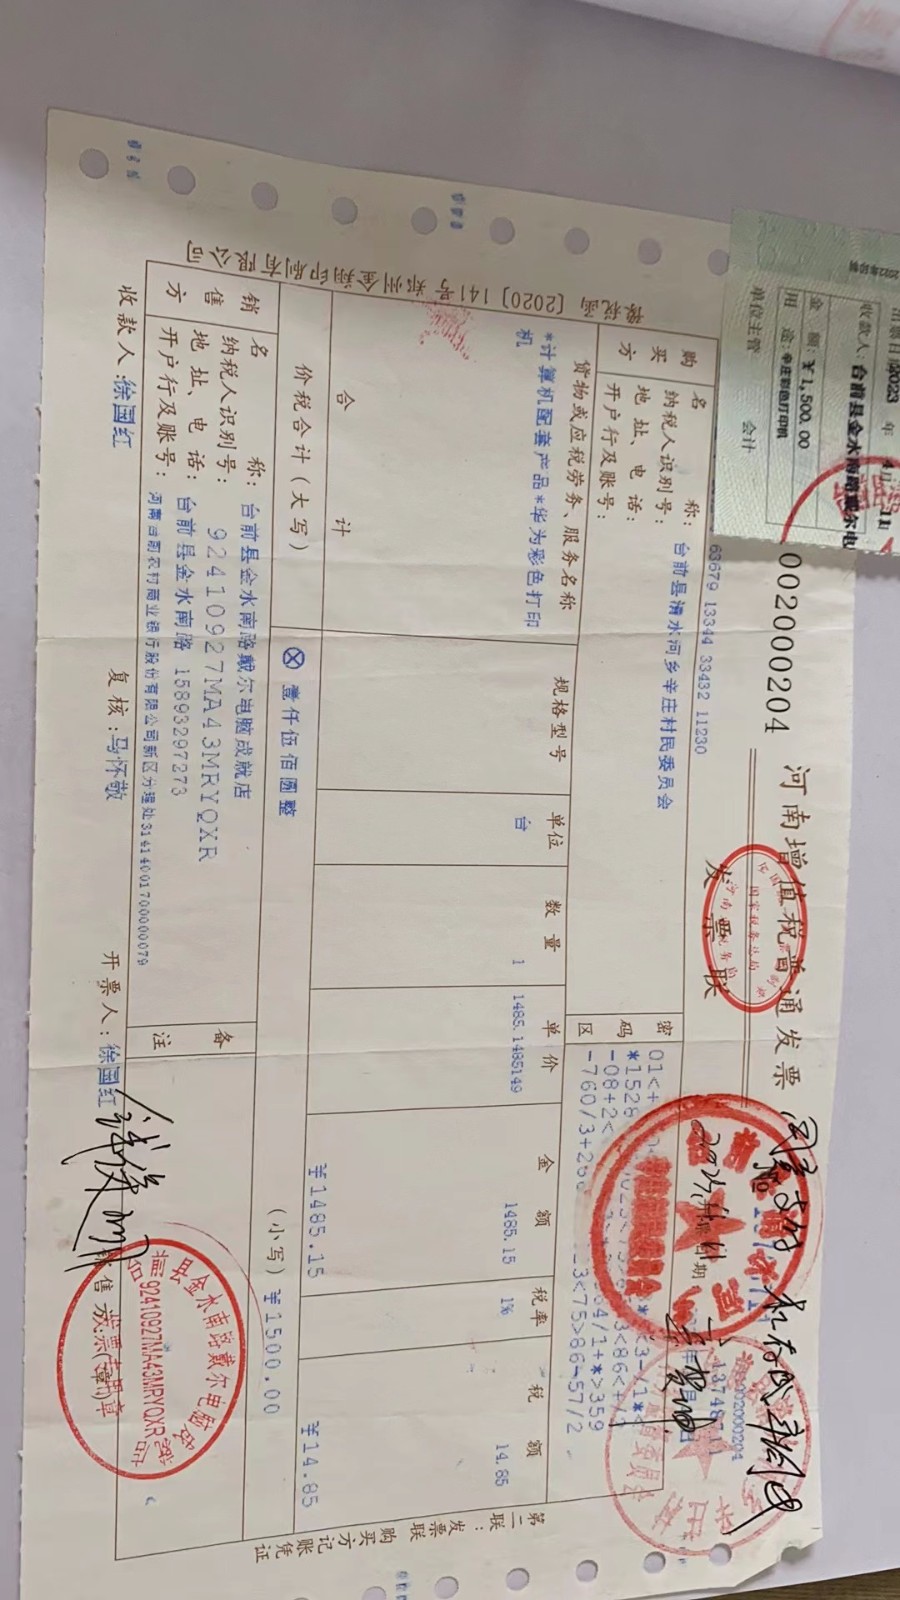 002000204
河南增值税普通发票
发票联
63679 13344 33432 11230
002000204
137487
购买方
名称：台前县清水河乡辛庄村民委员会
纳税人识别号：
地址、电话：
开户行及账号：
密码区
01<+
*1528
-08+2<
-760/3+266
3<75>86-57/2
货物或应税劳务、服务名称 规格型号 单位 数量 单价 金额 税率 税额
*计算机配套产品*华为彩色打印机 台 1 1485.1485149 1485.15 1% 14.85
合计 ￥1485.15 ￥14.85
价税合计（大写） ⊗壹仟伍佰圆整 （小写）￥1500.00
销售方
名称：台前县金水南路戴尔电脑成就店
纳税人识别号：92410927MA43MRYQXR
地址、电话：台前县金水南路 15893297273
开户行及账号：河南台前农村商业银行股份有限公司新区分理处31414001700000079
备注
收款人：徐国红 复核：马怀敬 开票人：徐国红 销售方：（章）
县金水南路戴尔电脑
92410927MA43MRYQXR
豫税函〔2020〕141号郑州金翔印刷有限公司
第二联：发票联 购买方记账凭证
出票日期2023年4月
收款人：台前县金水南路戴尔电
金额：￥1,500.00
用途：辛庄彩色打印机
单位主管 会计